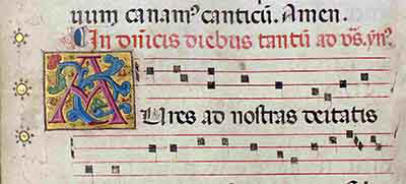 uum canam⁹ canticū. Amen.
In dn̄icis diebus tantū ad vs̄. yn⁹.
AUres ad nostras deitatis